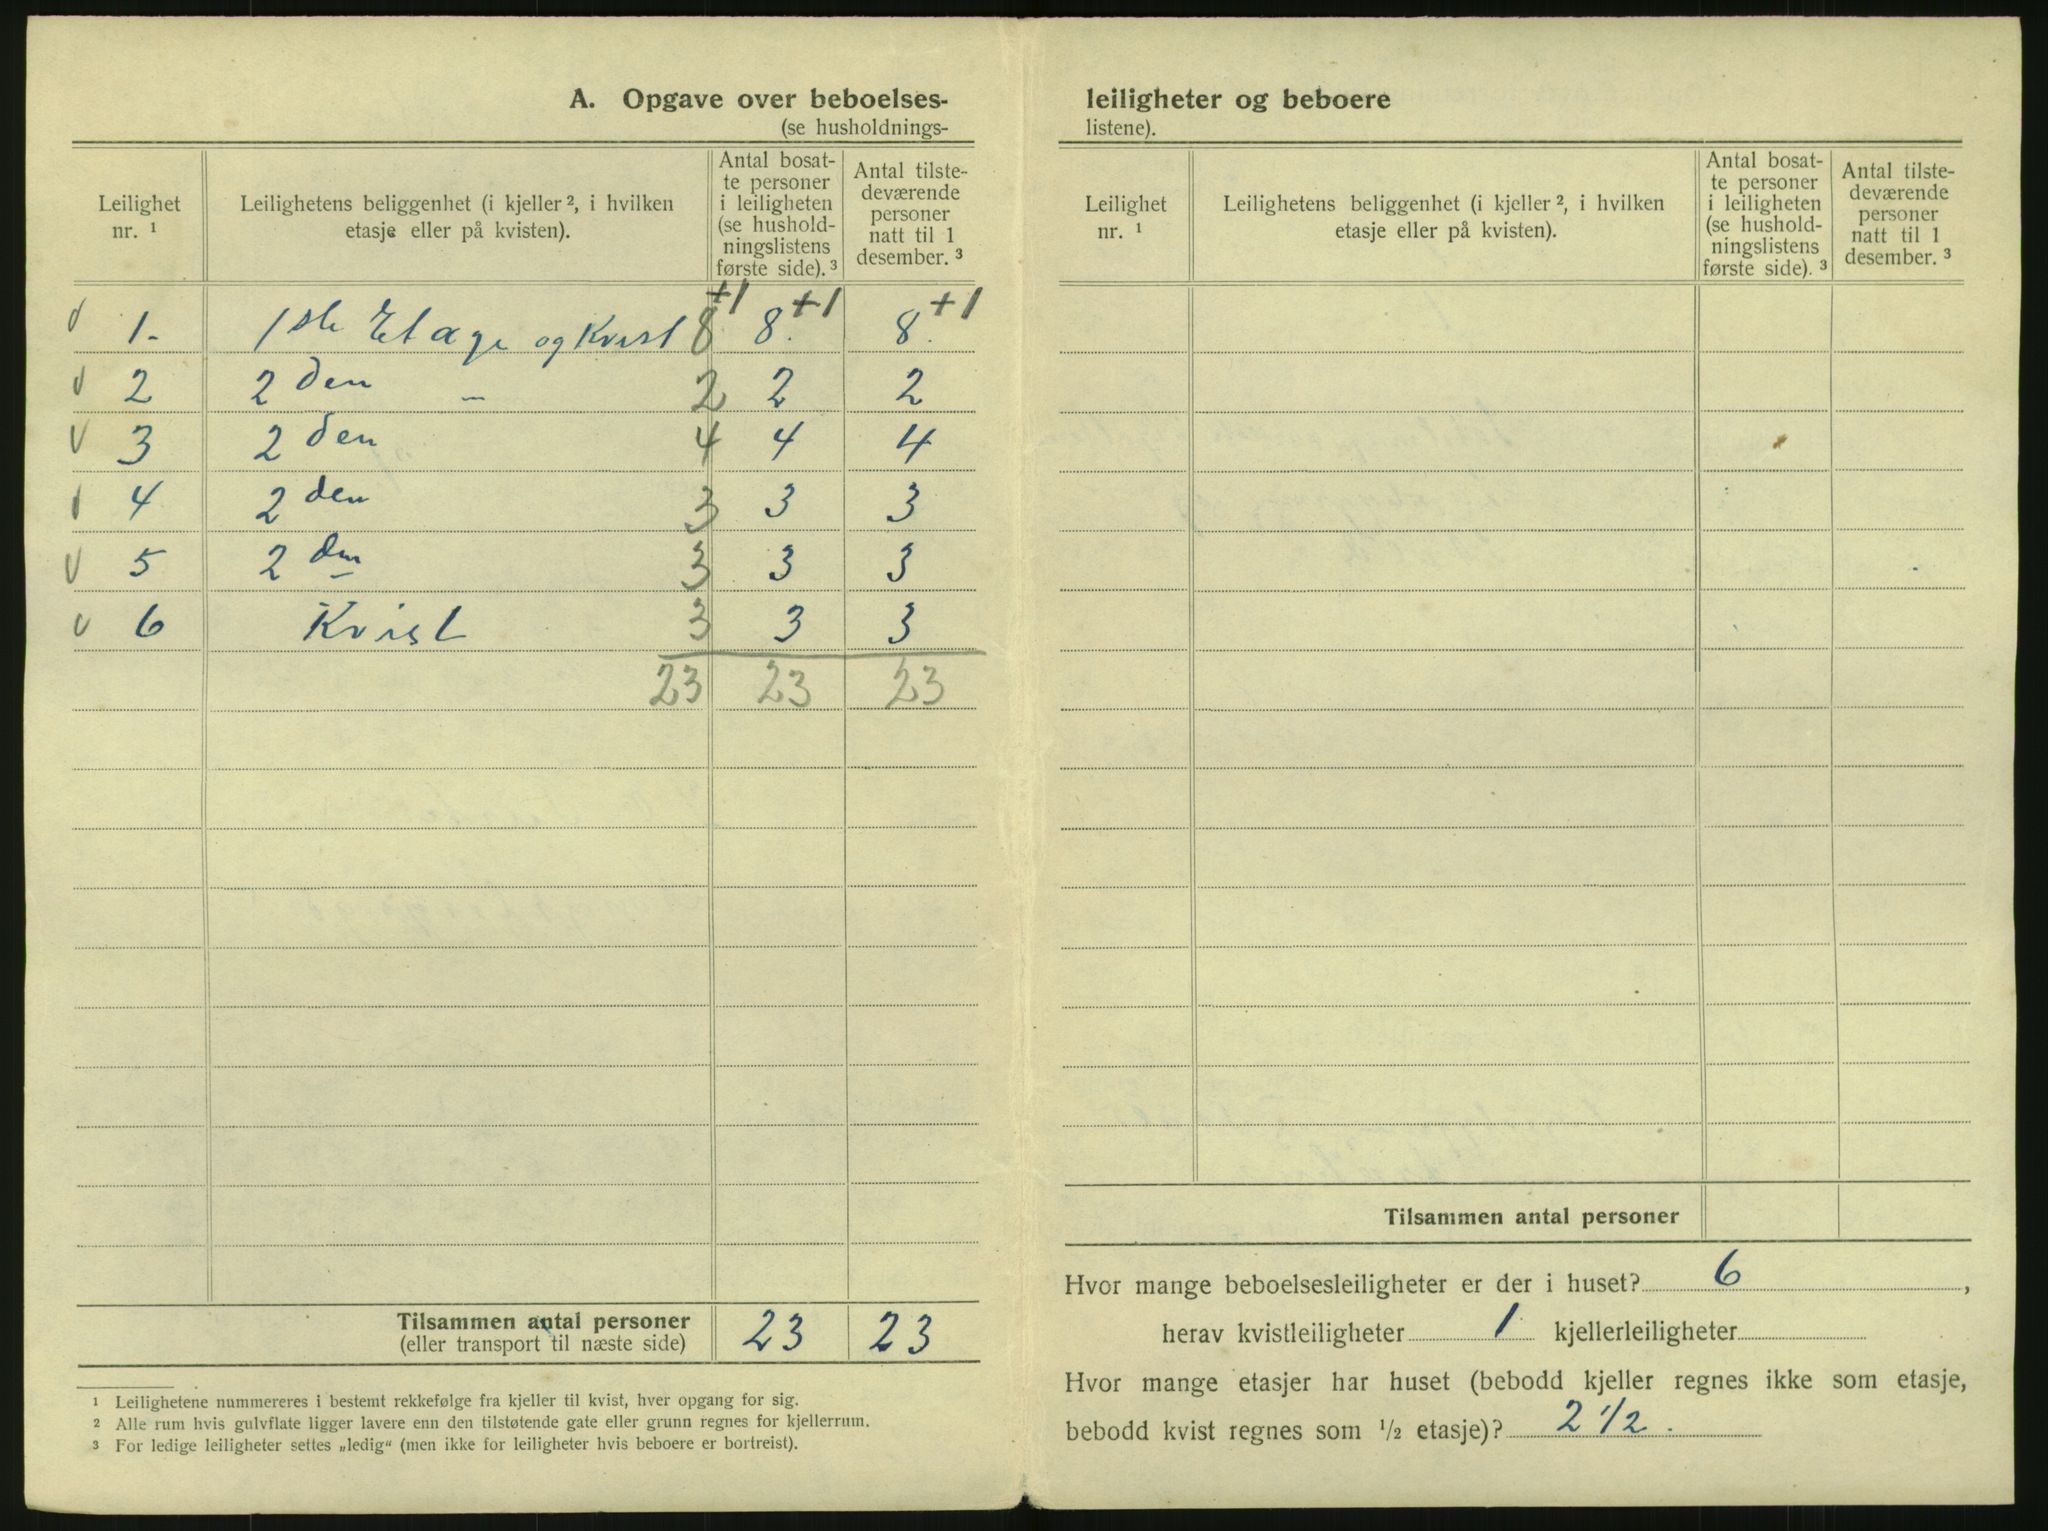 A. Opgave over beboelses-
(se husholdnings-
Leilighet nr. ¹
Leilighetens beliggenhet (i kjeller ², i hvilken etasje eller på kvisten).
Antal bosat-
te personer
i leiligheten
(se hushold-
ningslistens
første side). ³
Antal tilste-
deværende
personer
natt til 1
desember. ³
+1 +1 +1
1. 1ste Etage og Kvist 8 8. 8.
2 2den — 2 2 2
3 2den 4 4 4
4 2den 3 3 3
5 2den 3 3 3
6 Kvist 3 3 3
23 23 23
Tilsammen antal personer 23 23
(eller transport til næste side)
¹ Leilighetene nummereres i bestemt rekkefølge fra kjeller til kvist, hver opgang for sig.
² Alle rum hvis gulvflate ligger lavere enn den tilstøtende gate eller grunn regnes for kjellerrum.
³ For ledige leiligheter settes „ledig“ (men ikke for leiligheter hvis beboere er bortreist).
leiligheter og beboere
listene).
Leilighet nr. ¹
Leilighetens beliggenhet (i kjeller ², i hvilken etasje eller på kvisten).
Antal bosat-
te personer
i leiligheten
(se hushold-
ningslistens
første side). ³
Antal tilste-
deværende
personer
natt til 1
desember. ³
Tilsammen antal personer
Hvor mange beboelsesleiligheter er der i huset? 6 ,
herav kvistleiligheter 1 kjellerleiligheter
Hvor mange etasjer har huset (bebodd kjeller regnes ikke som etasje,
bebodd kvist regnes som ½ etasje)? 2 ½.